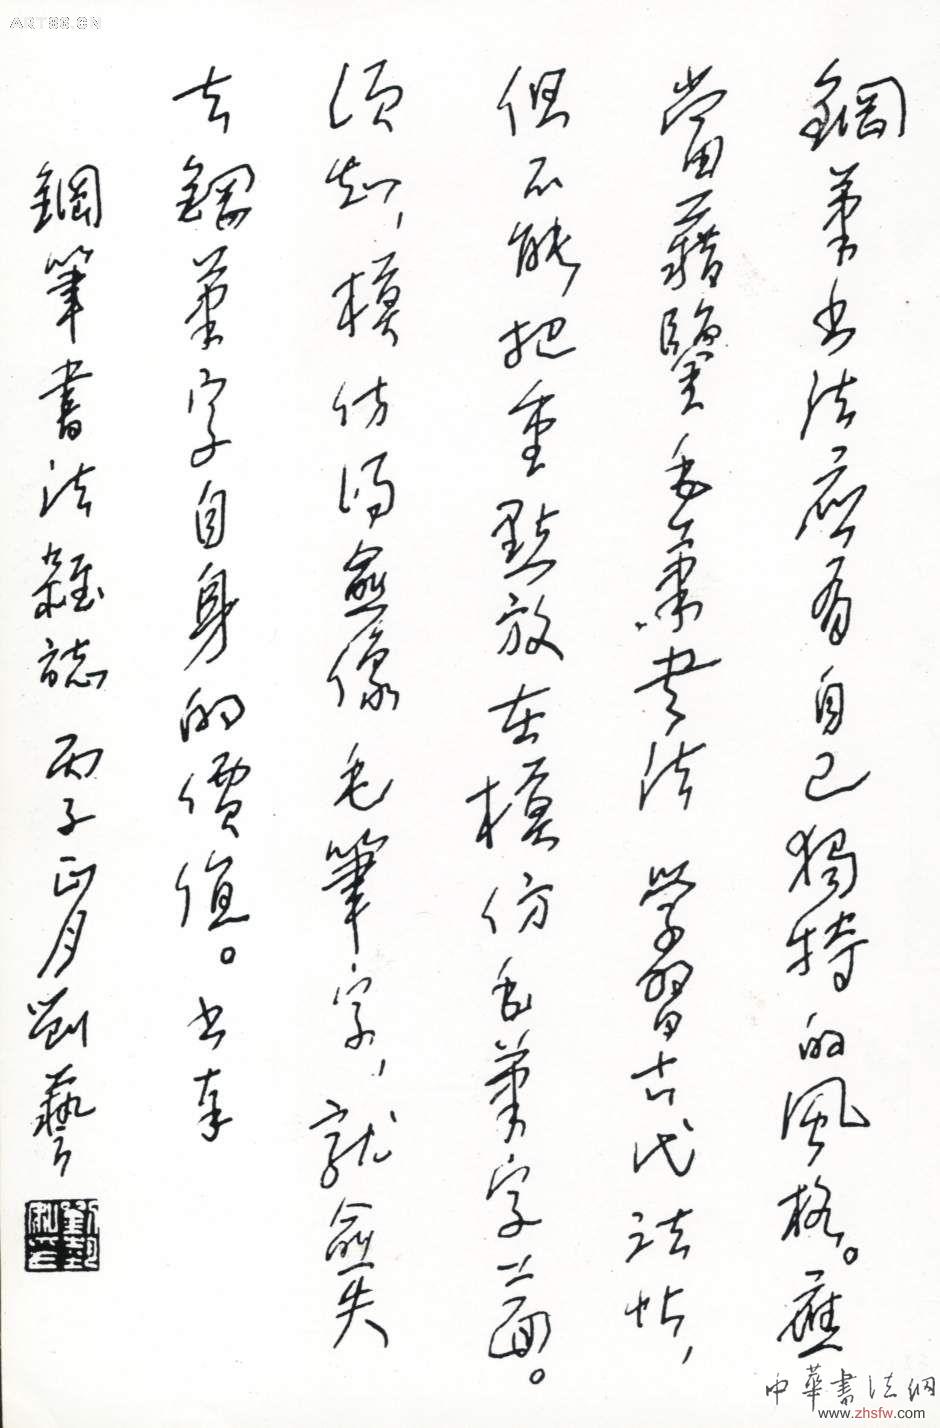 鋼筆书法应有自己獨特的風格。應
當藉鑒毛筆書法 學習古代法帖，
但不能把重點放在模仿毛筆字上面。
须知，模仿得愈像毛筆字，就愈失
去鋼筆字自身的價值。书奉
鋼筆書法雜誌 丙子正月 劉藝
ART86.CN
中華書法網
www.zhsfw.com